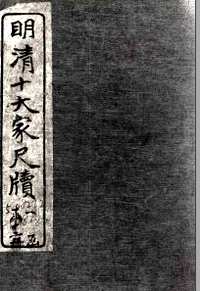 明清十大家尺牘